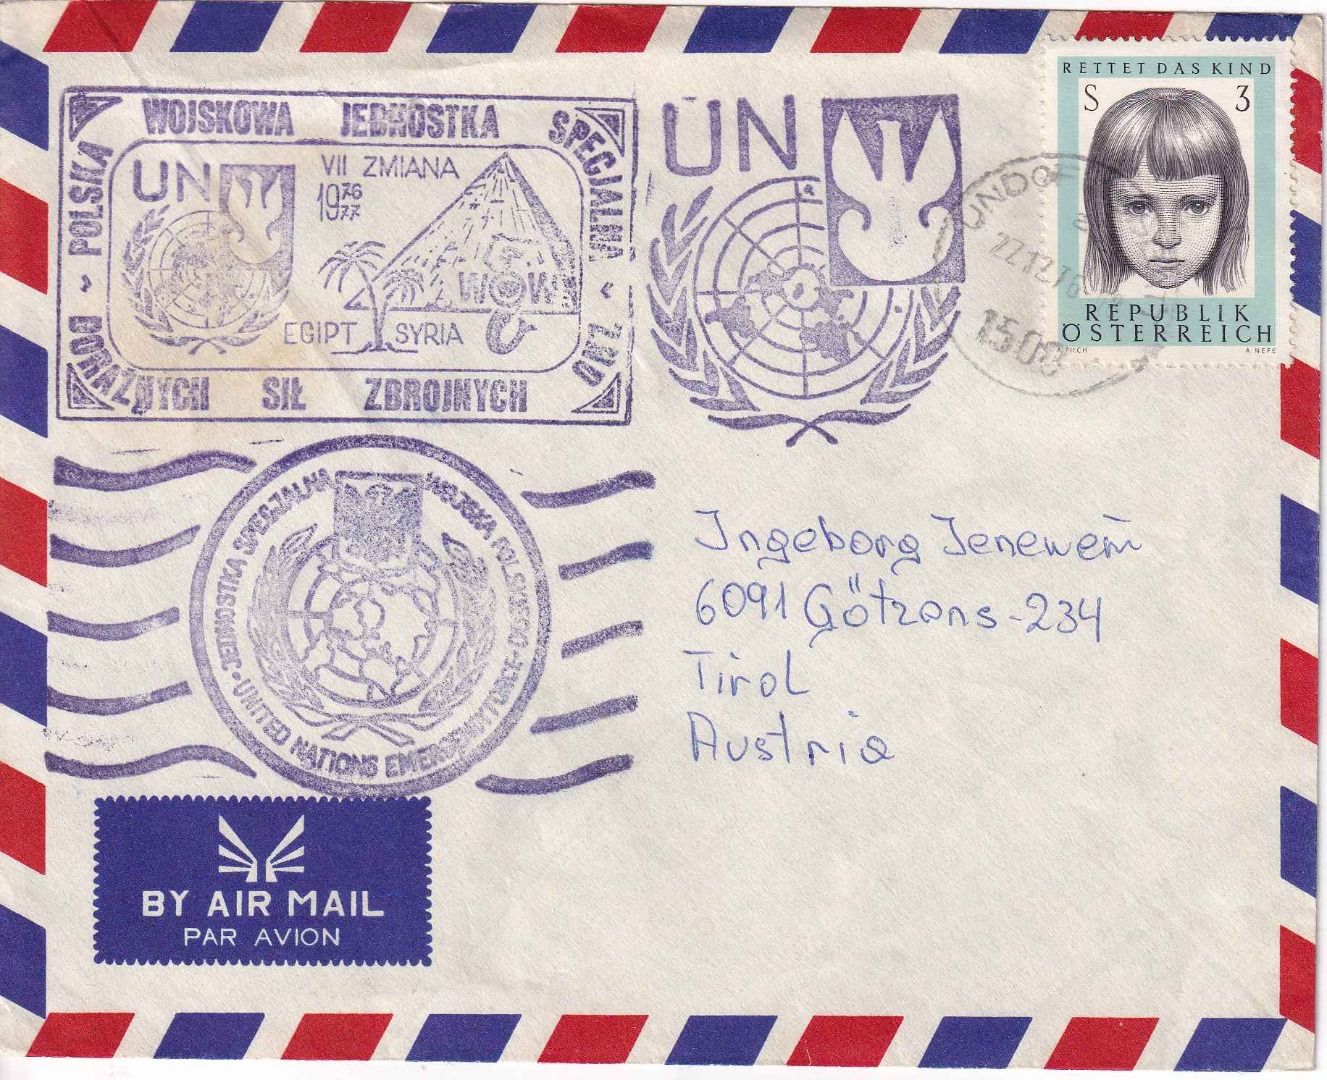 POLSKA WOJSKOWA JEDNOSTKA SPECJALNA DORAŹNYCH SIŁ ZBROJNYCH ONZ
UN
VII ZMIANA
1976
77
WOW
EGIPT SYRIA
UN
RETTET DAS KIND
S 3
REPUBLIK
ÖSTERREICH
A. NEFE
UNDO
22.12.76
1500
JEDNOSTKA SPECJALNA WOJSKA POLSKIEGO
UNITED NATIONS EMERGENCY FORCE
Ingeborg Jenewein
6091 Götzens-234
Tirol
Austria
BY AIR MAIL
PAR AVION